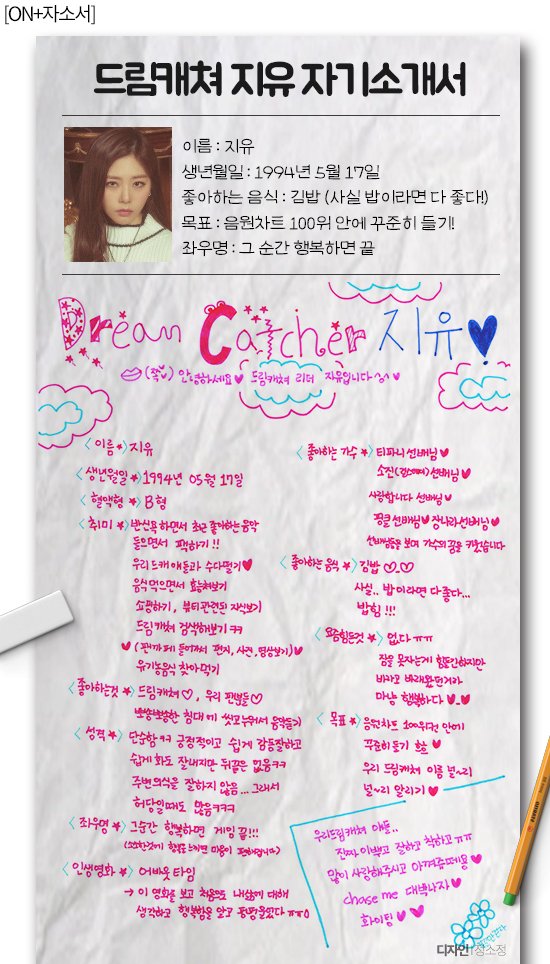 [ON+자소서]
드림캐쳐 지유 자기소개서
이름 : 지유
생년월일 : 1994년 5월 17일
좋아하는 음식 : 김밥 (사실 밥이라면 다 좋다!)
목표 : 음원차트 100위 안에 꾸준히 들기!
좌우명 : 그 순간 행복하면 끝
Dream Catcher 지유♥
(쪽♥) 안녕하세요♥ 드림캐쳐 리더 지유입니다^^ ♥
<이름★> 지유
<생년월일★> 1994년 05월 17일
<혈액형★> B형
<취미★> 반신욕 하면서 최근 좋아하는 음악
들으면서 팩하기!!
우리 드캐 애들과 수다떨기♥
음식먹으면서
쇼핑하기, 뷰티관련된
드림캐쳐 검색해보기 ㅋㅋ
♥(팬카페 들어가서 편지, 사진, 영상보기)♥
유기농음식 찾아먹기
<좋아하는것★> 드림캐쳐♡, 우리 팬분들♡
뽀송뽀송한 침대에 씻고 누워서 음악듣기
<성격★> 단순함ㅋㅋ 긍정적이고 쉽게 감동잘하고
쉽게 화도 잘내지만 뒤끝은 없음ㅋㅋ
주변의식을 잘하지 않음...그래서
허당일때도 많음ㅋㅋㅋ
<좌우명★> 그순간 행복하면 게임 끝!!!
(소소한것에 행복 느끼면 마음이 편해집니다)
<인생영화★> 어바웃 타임
→ 이 영화를 보고 처음으로 내삶에 대해
생각하고 행복함을 알고 펑펑울었다 ㅠㅠ
<좋아하는 가수★> 티파니 선배님♥
소진(걸스데이)선배님♥
사랑합니다 선배님♥
핑클선배님♥장나라선배님♥
선배님들을 보며 가수의 꿈을 키웠습니다
<좋아하는 음식★> 김밥
사실.. 밥이라면 다좋다...
밥힘!!!
<요즘힘든것★> 없다ㅠㅠ
잠을 못자는게 힘들긴하지만
바라고 바래왔던거라
마냥 행복하다♥_♥
<목표★> 음원차트 100위권 안에
꾸준히 듣기 흐흐♥
우리 드림캐쳐 이름 널~리
널~리 알리기♥
우리드림캐쳐 애들..
진짜 이쁘고 잘하고 착하고ㅠㅠ
많이 사랑해주시고 아껴주세용♥
chase me 대박나자♥
화이팅♥♥
디자인 | 장소정